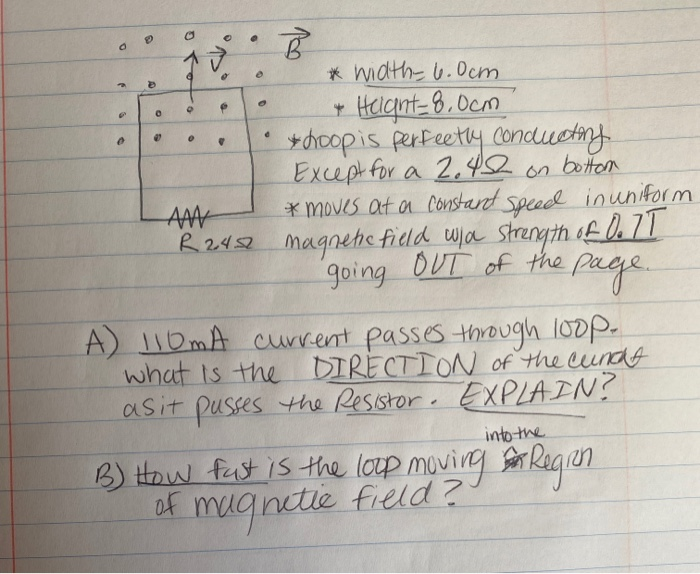 B
V
* width= 6.0cm
* Height=8.0cm
* loop is perfectly conducting
Except for a 2.4Ω on bottom
* moves at a constant speed in uniform
R 2.4Ω magnetic field w/a strength of 0.7T
going OUT of the page.
A) 110mA current passes through loop.
what is the DIRECTION of the current
as it passes the Resistor. EXPLAIN?
into the
B) How fast is the loop moving Region
of magnetic field?